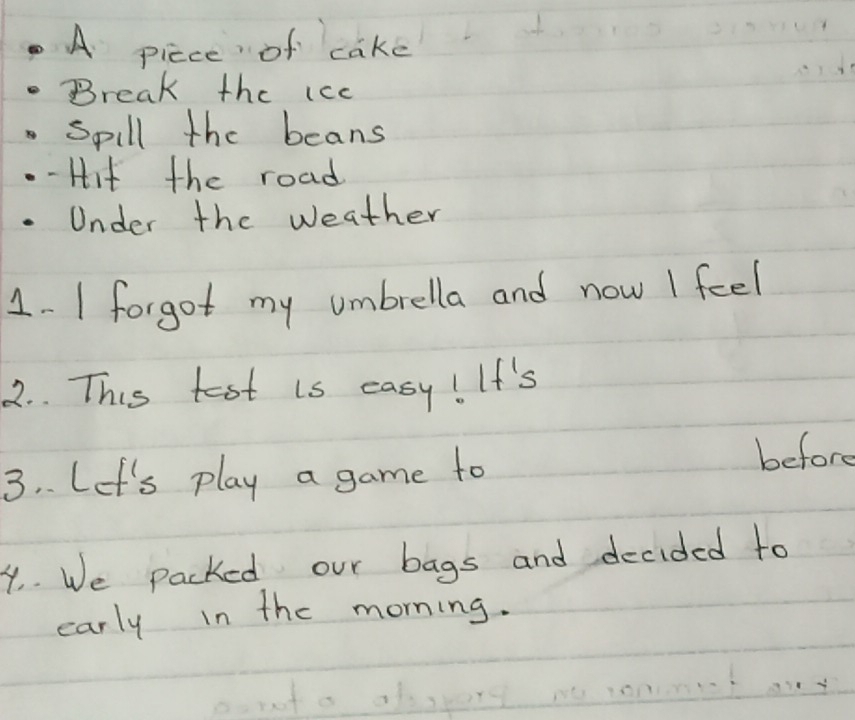 • A piece of cake
• Break the ice
• Spill the beans
• - Hit the road
• Under the weather
1.- I forgot my umbrella and now I feel
2.. This test is easy! It's
3.. Let's play a game to before
4.. We packed our bags and decided to
early in the morning.